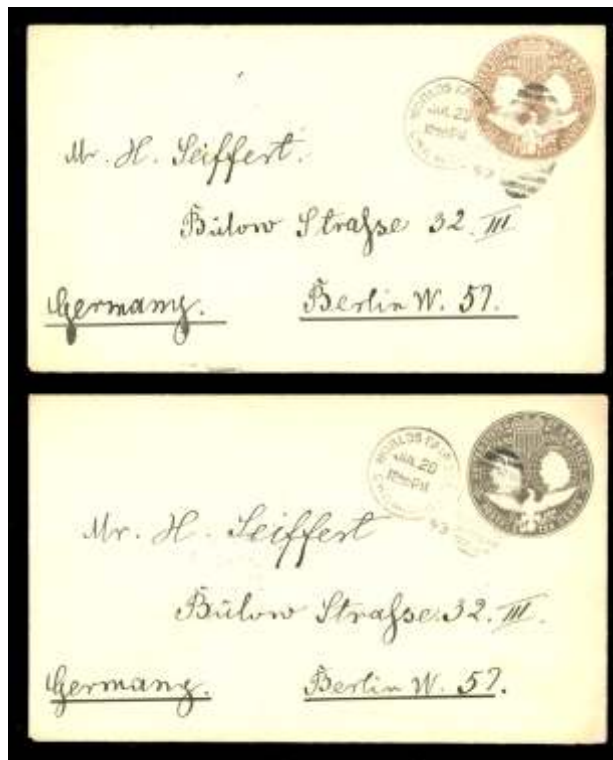 WORLDS FAIR
JUL 20
Mr. H. Seiffert.
Bülow Straſse 32. III
Germany. Berlin W. 57.
WORLDS FAIR
JUL 20
Mr. H. Seiffert
Bülow Straſse. 32. III.
Germany. Berlin W. 57.